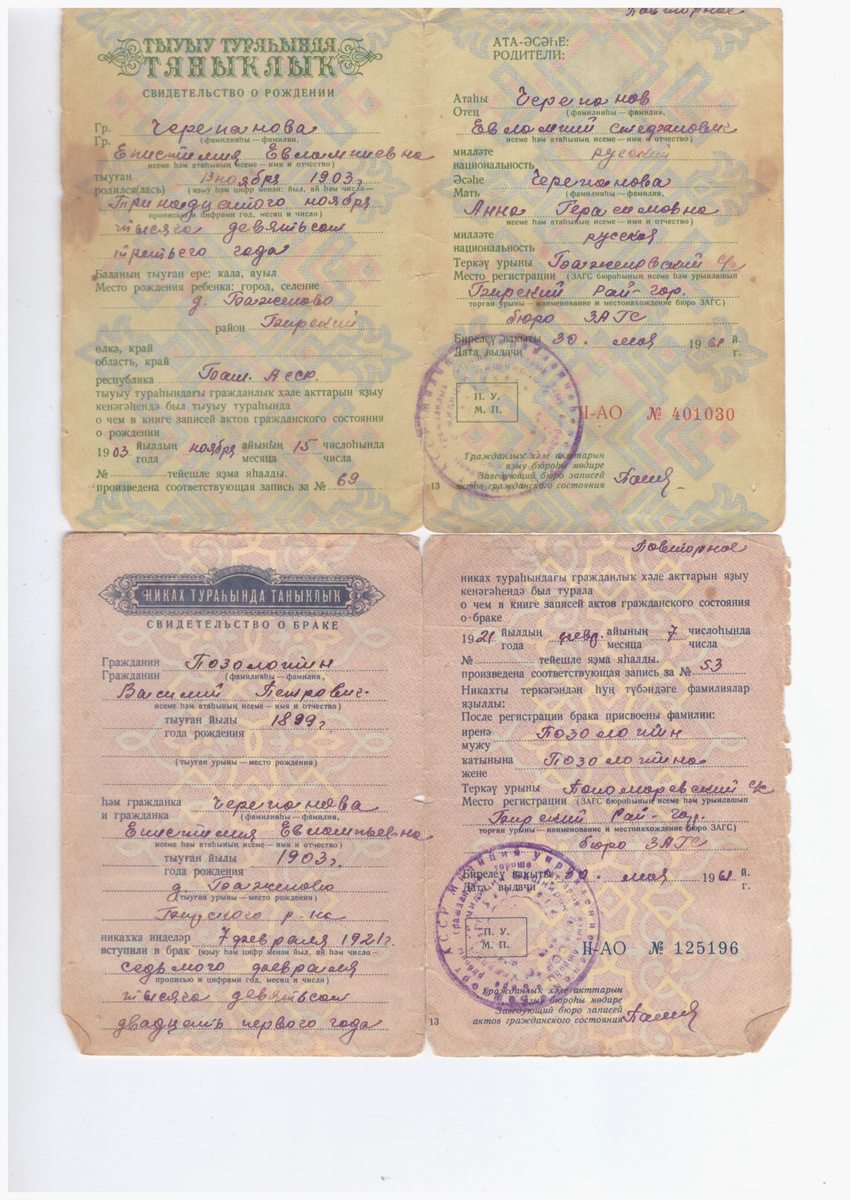 ТЫУЫУ ТУРАҺЫНДА
ТАНЫҠЛЫҠ
СВИДЕТЕЛЬСТВО О РОЖДЕНИИ
Гр. Черепанова
Гр. (фамилияһы — фамилия,
Епистимия Евлампиевна
исеме һәм атаһының исеме — имя и отчество)
тыуған
родился(лась) 13 ноября 1903 г.
(яҙыу һәм цифр менән: йыл, ай һәм число —
Тринадцатого ноября
прописью и цифрами год, месяц и число)
тысяча девятьсот
третьего года
Баланың тыуған ере: ҡала, ауыл
Место рождения ребенка: город, селение
д. Баженово
район Бирский
өлкә, край
область, край
республика Баш. АССР
тыуыу тураһындағы гражданлыҡ хәле акттарын яҙыу
кенәгәһендә был тыуыу тураһында
о чем в книге записей актов гражданского состояния
о рождении
1903 йылдың ноября айының 15 числоһында
года месяца числа
№ тейешле яҙма яһалды.
произведена соответствующая запись за № 69
Повторное
АТА-ӘСӘҺЕ:
РОДИТЕЛИ:
Атаһы Черепанов
Отец (фамилияһы — фамилия,
Евлампий Степанович
исеме һәм атаһының исеме — имя и отчество)
милләте русский
национальность
Әсәһе Черепанова
Мать (фамилияһы — фамилия,
Анна Герасимовна
исеме һәм атаһының исеме — имя и отчество)
милләте русская
национальность
Теркәү урыны Баженовский с/с
Место регистрации (ЗАГС бюроһының исеме һәм урынлашып
Бирский Рай-гор.
торған урыны — наименование и местонахождение бюро ЗАГС)
бюро ЗАГС
Бирелеү ваҡыты 30. мая 1961 й.
Дата выдачи г.
П. У.
М. П.
II-АО № 401030
Гражданлыҡ хәле акттарын
яҙыу бюроһы мөдире
Заведующий бюро записей
13 актов гражданского состояния
НИКАХ ТУРАҺЫНДА ТАНЫҠЛЫҠ
СВИДЕТЕЛЬСТВО О БРАКЕ
Гражданин Позолотин
Гражданин (фамилияһы — фамилия,
Василий Петрович
исеме һәм атаһының исеме — имя и отчество)
тыуған йылы 1899 г.
года рождения
(тыуған урыны — место рождения)
һәм гражданка Черепанова
и гражданка (фамилияһы — фамилия,
Епистимия Евлампьевна
исеме һәм атаһының исеме — имя и отчество)
тыуған йылы 1903 г.
года рождения
д. Баженово
(тыуған урыны — место рождения)
Бирского р-на
никахҡа инделәр 7 февраля 1921 г.
вступили в брак (яҙыу һәм цифр менән йыл, ай һәм число —
седьмого февраля
прописью и цифрами год, месяц и число)
тысяча девятьсот
двадцать первого года
Повторное
никах тураһындағы гражданлыҡ хәле акттарын яҙыу
кенәгәһендә был турала
о чем в книге записей актов гражданского состояния
о браке
1921 йылдың февр. айының 7 числоһында
года месяца числа
№ тейешле яҙма яһалды.
произведена соответствующая запись за № 53
Никахты теркәгәндән һуң түбәндәге фамилиялар
яҙылды:
После регистрации брака присвоены фамилии:
иренә Позолотин
мужу
ҡатынына Позолотина
жене
Теркәү урыны Пономаревский с/с
Место регистрации (ЗАГС бюроһының исеме һәм урынлашып
Бирский Рай-гор.
торған урыны — наименование и местонахождение бюро ЗАГС)
бюро ЗАГС
Бирелеү ваҡыты 30. мая 1961 й.
Дата выдачи г.
П. У.
М. П.
II-АО № 125196
Гражданлыҡ хәле акттарын
яҙыу бюроһы мөдире
Заведующий бюро записей
13 актов гражданского состояния